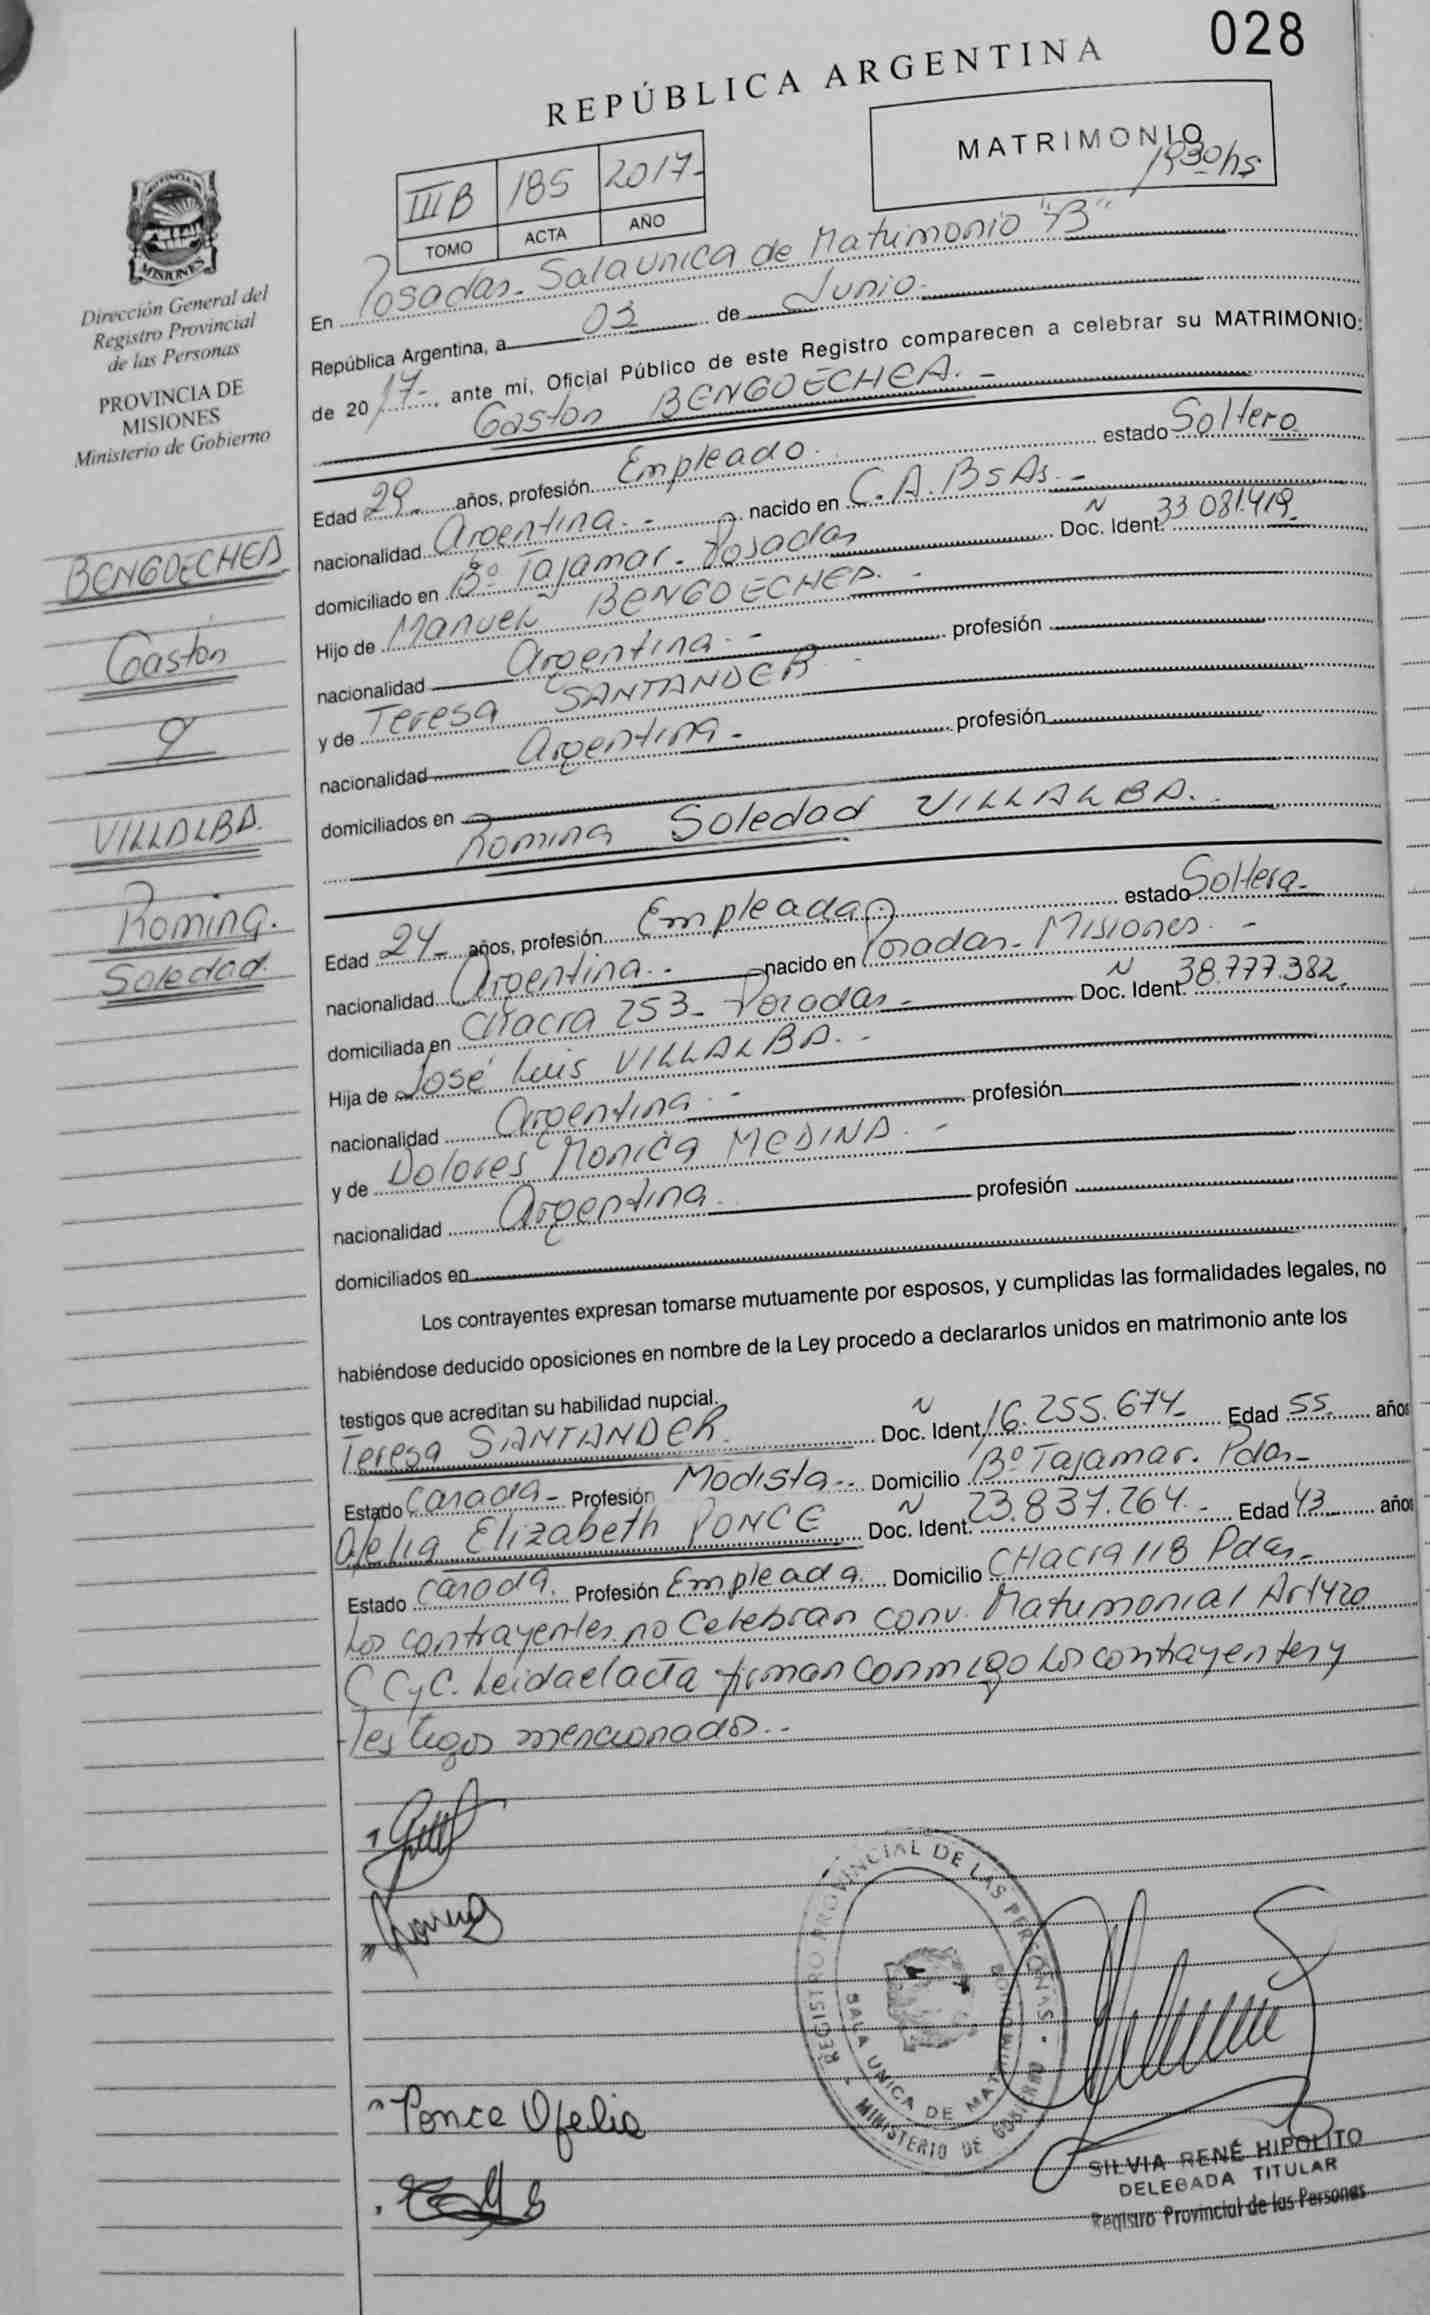 028
REPÚBLICA ARGENTINA
MATRIMONIO
1930hs
III B 185 2017-
TOMO ACTA AÑO
MISIONES
Dirección General del
Registro Provincial
de las Personas
PROVINCIA DE
MISIONES
Ministerio de Gobierno
BENGOECHEA
Gastón
y
VILLALBA.
Romina.
Soledad.
En Posadas - Sala Unica de Matrimonio "B"
República Argentina, a 03 de Junio.
de 20 17-, ante mi, Oficial Público de este Registro comparecen a celebrar su MATRIMONIO:
Gastón BENGOECHEA. -
Edad 29- años, profesión Empleado. estado Soltero
nacionalidad Argentina. - nacido en C.A. Bs As. -
domiciliado en Bº Tajamar - Posadas Doc. Ident. N 33 081.419
Hijo de Manuel BENGOECHEA. -
nacionalidad Argentina. - profesión
y de Teresa SANTANDER -
nacionalidad Argentina - profesión
domiciliados en
Romina Soledad VILLALBA. -
Edad 24- años, profesión Empleada estado Soltera-
nacionalidad Argentina. - nacido en Posadas - Misiones. -
domiciliada en CHacra 253 - Posadas - Doc. Ident. N 38.777.382
Hija de José Luis VILLALBA. -
nacionalidad Argentina. - profesión
y de Dolores Monica MEDINA. -
nacionalidad Argentina. profesión
domiciliados en
Los contrayentes expresan tomarse mutuamente por esposos, y cumplidas las formalidades legales, no
habiéndose deducido oposiciones en nombre de la Ley procedo a declararlos unidos en matrimonio ante los
testigos que acreditan su habilidad nupcial.
Teresa SANTANDER. Doc. Ident. N 16.255.674- Edad 55. años
Estado Casada - Profesión Modista -. Domicilio Bº Tajamar. Pdas-
Ofelia Elizabeth PONCE Doc. Ident. N 23.837.264.- Edad 43 años
Estado Casada. Profesión Empleada. Domicilio CHacra 118 Pdas-
Los contrayentes no Celebran conv. Matrimonial Art 420
C C y C. Leida el acta firman conmigo los contrayentes y
testigos mencionados. -
Ponce Ofelia
REGISTRO PROVINCIAL DE LAS PERSONAS
SALA UNICA DE MATRIMONIO
MINISTERIO DE GOBIERNO
SILVIA RENÉ HIPOLITO
DELEGADA TITULAR
Registro Provincial de las Personas